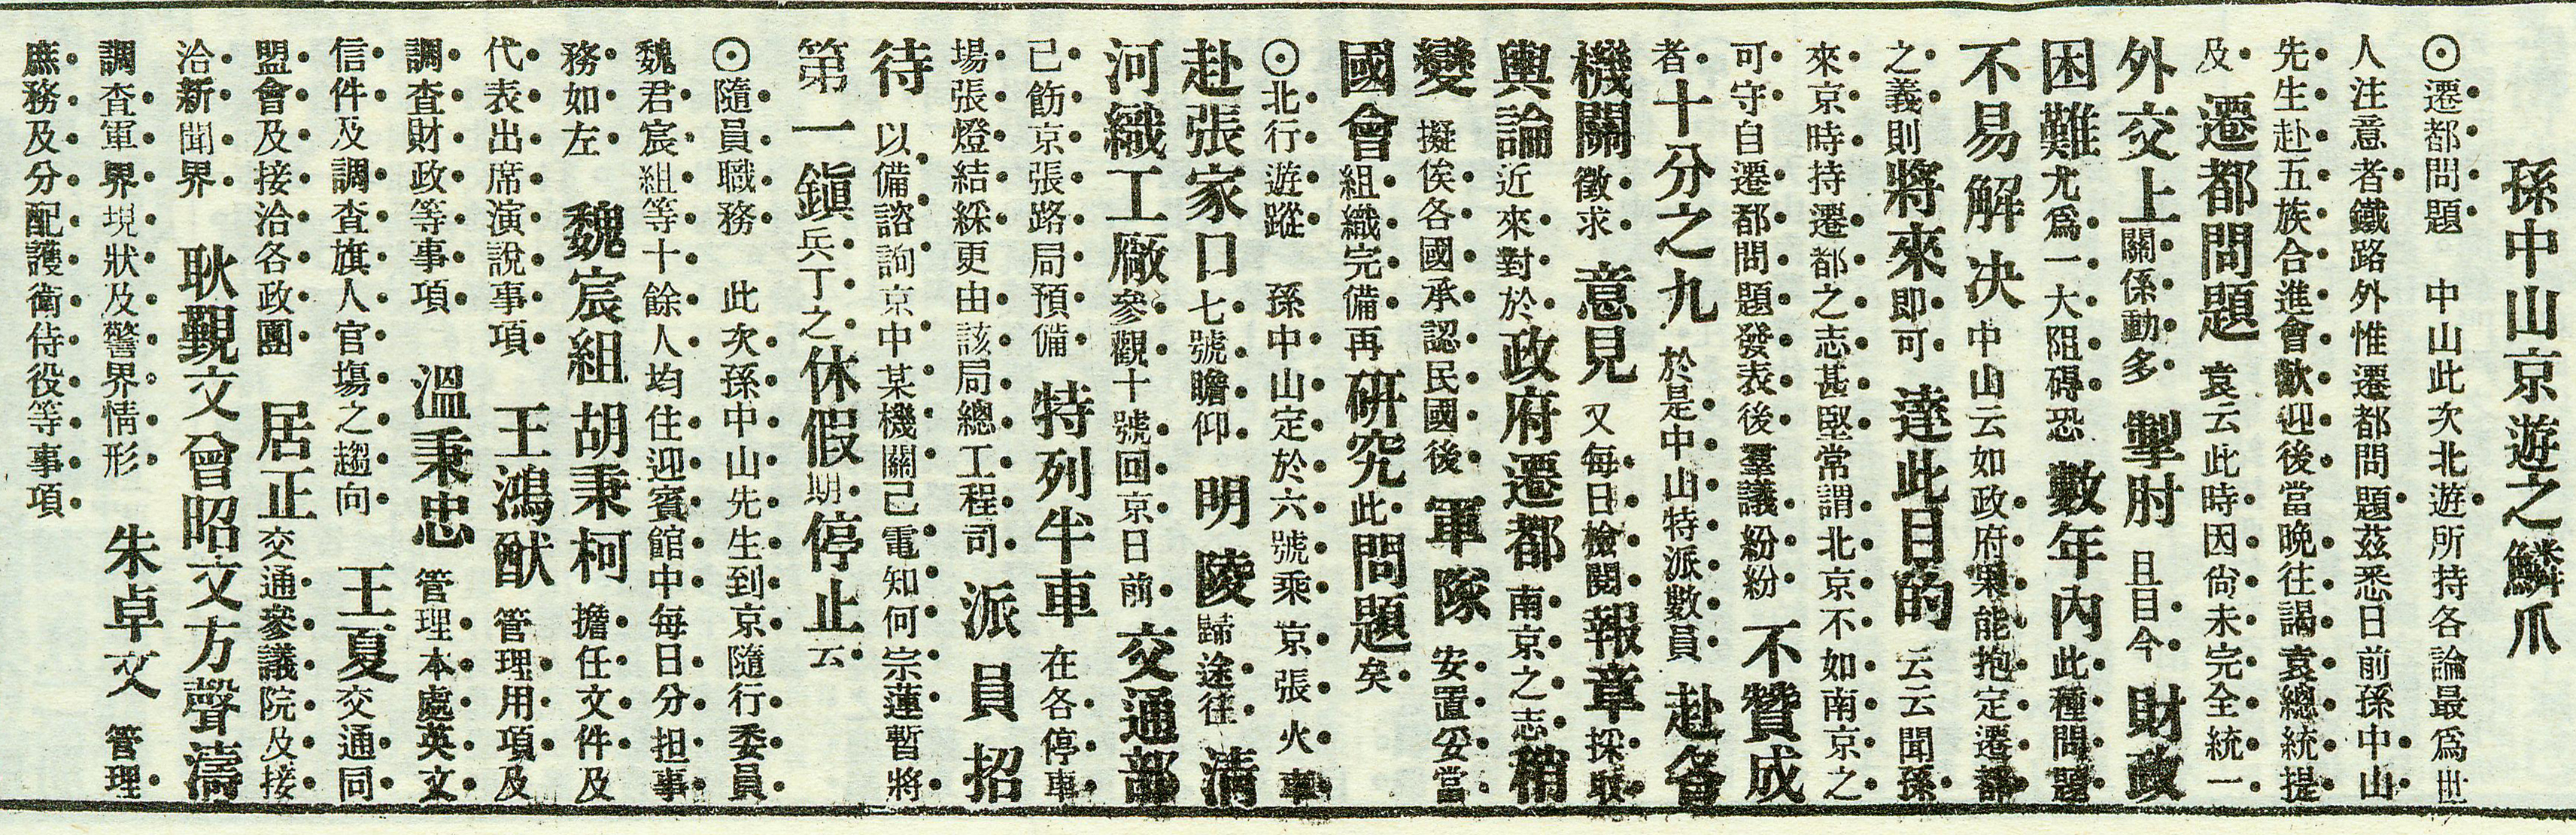 孫中山京遊之鱗爪
⊙遷都問題　中山此次北遊所持各論最爲世
人注意者鐵路外惟遷都問題茲悉日前孫中山
先生赴五族合進會歡迎後當晚往謁袁總統提
及遷都問題袁云此時因尙未完全統一
外交上關係動多掣肘且目今財政
困難尤爲一大阻碍恐數年內此種問題
不易解决中山云如政府果能抱定遷都
之義則將來即可達此目的云云聞孫
來京時持遷都之志甚堅常謂北京不如南京之
可守自遷都問題發表後羣議紛紛不贊成
者十分之九於是中山特派數員赴各
機關徵求意見又每日檢閱報章採取
輿論近來對於政府遷都南京之志稍
變擬俟各國承認民國後軍隊安置妥當
國會組織完備再硏究此問題矣
⊙北行遊蹤　孫中山定於六號乘京張火車
赴張家口七號瞻仰明陵歸途往淸
河織工廠參觀十號回京日前交通部
已飭京張路局預備特列牛車在各停車
場張燈結綵更由該局總工程司派員招
待以備諮詢京中某機關已電知何宗蓮暫將
第一鎭兵丁之休假期停止云
⊙隨員職務　此次孫中山先生到京隨行委員
魏君宸組等十餘人均住迎賓館中每日分担事
務如左　魏宸組胡秉柯擔任文件及
代表出席演說事項　王鴻猷管理用項及
調查財政等事項　溫秉忠管理本處英文
信件及調查旗人官塲之趨向　王夏交通同
盟會及接洽各政團　居正交通參議院及接
洽新聞界　耿覲文曾昭文方聲濤
調查軍界現狀及警界情形　朱卓文管理
庶務及分配護衛侍役等事項